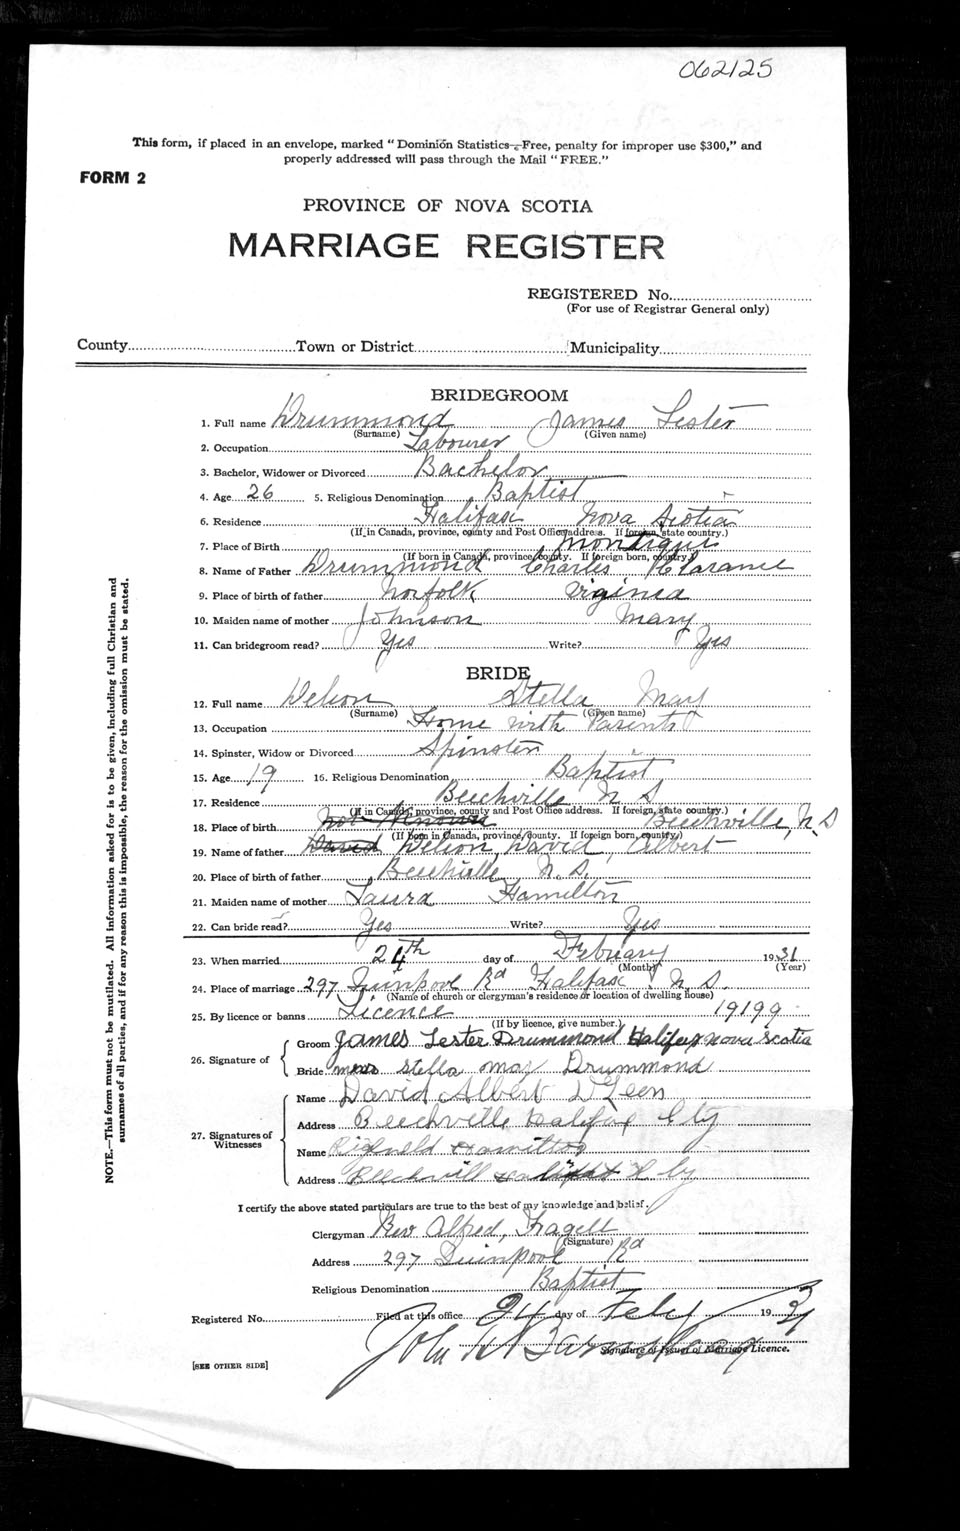 062125
This form, if placed in an envelope, marked "Dominion Statistics—Free, penalty for improper use $300," and
properly addressed will pass through the Mail "FREE."
FORM 2
PROVINCE OF NOVA SCOTIA
MARRIAGE REGISTER
REGISTERED No.
(For use of Registrar General only)
County Town or District Municipality
NOTE.—This form must not be mutilated. All information asked for is to be given, including full Christian and
surnames of all parties, and if for any reason this is impossible, the reason for the omission must be stated.
BRIDEGROOM
1. Full name Drummond James Lester
(Surname) (Given name)
2. Occupation Labourer
3. Bachelor, Widower or Divorced Bachelor
4. Age 26 5. Religious Denomination Baptist
6. Residence Halifax Nova Scotia
(If in Canada, province, county and Post Office address. If foreign, state country.)
7. Place of Birth
(If born in Canada, province, county. If foreign born, country.)
8. Name of Father Drummond Charles Clarance
9. Place of birth of father Norfolk Virginia
10. Maiden name of mother Johnson Mary
11. Can bridegroom read? Yes Write? Yes
BRIDE
12. Full name Stella May
(Surname) (Given name)
13. Occupation Home with Parents
14. Spinster, Widow or Divorced Spinster
15. Age 19 16. Religious Denomination Baptist
17. Residence Beechville N S
(If in Canada, province, county and Post Office address. If foreign, state country.)
18. Place of birth Not Known Beechville, N S
(If born in Canada, province, county. If foreign born, country.)
19. Name of father David David, Albert
20. Place of birth of father Beechville N. S.
21. Maiden name of mother Laura Hamilton
22. Can bride read? Yes Write? Yes
23. When married 24th day of Febuary 1931
(Month) (Year)
24. Place of marriage 297 Quinpool Rd Halifax N. S.
(Name of church or clergyman's residence or location of dwelling house)
25. By licence or banns Licence 19199
(If by licence, give number.)
26. Signature of
Groom James Lester Drummond Halifax nova scotia
Bride mrs stella may Drummond
27. Signatures of
Witnesses
Name David Albert
Address Beechville Halifax Cty
Name Hamilton
Address Beechvill
I certify the above stated particulars are true to the best of my knowledge and belief.
Clergyman Rev Alfred,
(Signature)
Address 297 Quinpool Rd
Religious Denomination Baptist
Registered No. Filed at this office 24 day of Feby 1931
John
Signature of Issuer of Marriage Licence.
[SEE OTHER SIDE]